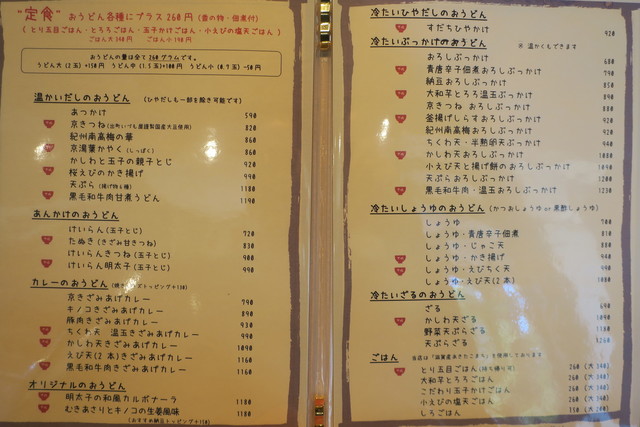 "定食" おうどん各種にプラス260円 (香の物・佃煮付)
(とり五目ごはん・とろろごはん・玉子かけごはん・小えびの塩天ごはん)
ごはん大340円 ごはん小190円
おうどんの量は全て260グラムです。
うどん大(2玉)+150円 うどん中(1.5玉)+100円 うどん小(0.7玉)-50円
温かいだしのおうどん (ひやだしも一部を除き可能です)
あつかけ 590
京きつね 820
紀州南高梅の華 860
京湯葉かやく(しっぽく) 860
かしわと玉子の親子とじ 920
桜えびのかき揚げ 990
天ぷら(揚げ物6種) 1180
黒毛和牛肉甘煮うどん 1190
あんかけのおうどん
けいらん(玉子とじ) 720
たぬき(きざみ甘きつね) 830
けいらんきつね(玉子とじ) 900
けいらん明太子(玉子とじ) 990
カレーのおうどん
京きざみあげカレー 790
キノコきざみあげカレー 890
豚肉きざみあげカレー 930
ちくわ天 温玉きざみあげカレー 990
かしわ天きざみあげカレー 1090
えび天(2本)きざみあげカレー 1160
黒毛和牛肉きざみあげカレー 1160
オリジナルのおうどん
明太子の和風カルボナーラ 1180
むきあさりとキノコの生姜風味 1180
(おすすめ納豆トッピング+110)
冷たいひやだしのおうどん
すだちひやかけ 920
冷たいぶっかけのおうどん ※ 温かくもできます
おろしぶっかけ 680
青唐辛子佃煮おろしぶっかけ 790
納豆おろしぶっかけ 790
大和芋とろろ温玉ぶっかけ 890
京きつね おろしぶっかけ 890
釜揚げしらすおろしぶっかけ 920
紀州南高梅おろしぶっかけ 920
ちくわ天・半熟卵天ぶっかけ 940
かしわ天おろしぶっかけ 1080
小えび天と揚げ餅のおろしぶっかけ 1090
天ぷらおろしぶっかけ 1200
黒毛和牛肉・温玉おろしぶっかけ 1230
冷たいしょうゆのおうどん (かつおしょうゆ or 黒酢しょうゆ)
しょうゆ 700
しょうゆ・青唐辛子佃煮 810
しょうゆ・じゃこ天 880
しょうゆ・かき揚げ 990
しょうゆ・えびちく天 990
しょうゆ・えび天(2本) 1080
冷たいざるのおうどん
ざる 690
かしわ天ざる 1060
野菜天ぷらざる 1160
天ぷらざる 1260
ごはん 当店は「滋賀産あきたこまち」を使用しております
とり五目ごはん(持ち帰り可) 260 (大340)
大和芋とろろごはん 260 (大340)
こだわり玉子かけごはん 260 (大340)
小えびの塩天ごはん 260 (大340)
しろごはん 150 (大200)